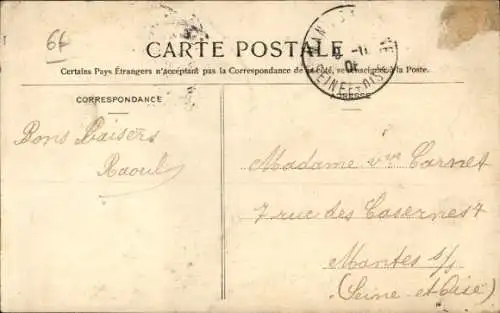 6f
CARTE POSTALE
Certains Pays Étrangers n'acceptant pas la Correspondance de ce côté, se renseigner à la Poste.
CORRESPONDANCE
ADRESSE
Bons Baisers
Raoul
Madame vve Carnet
7 rue des Casernes 7
Mantes s/s
(Seine-et-Oise)